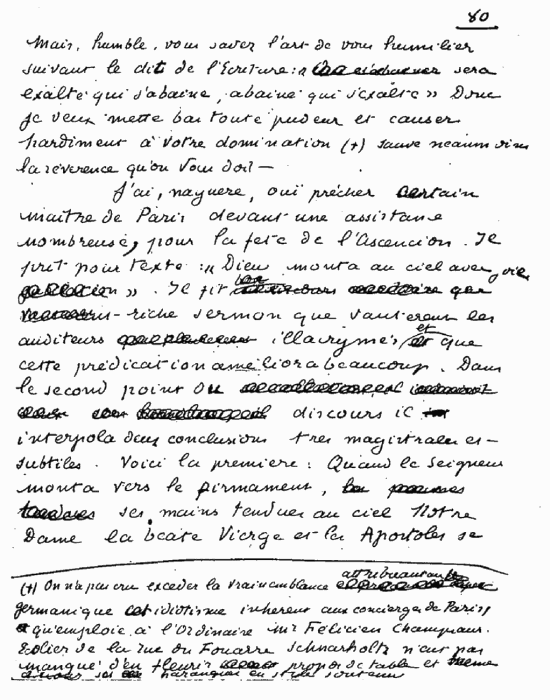 80
Mais, humble, vous savez l'art de vous humilier
suivant le dit de l'Ecriture: « sera
exalté qui s'abaisse, abaissé qui s'exalte » Donc
je veux mettre bas toute pudeur et causer
hardiment à votre domination (+) sauve néanmoins
la révérence qu'on vous doit —
J'ai, naguère, ouï prêcher certain
maître de Paris devant une assistance
nombreuse, pour la fête de l'Ascencion. Il
prit pour texte: « Dieu monta au ciel avec
». Il fit
-riche sermon que vantèrent les
auditeurs illacrymés, et que
cette prédication améliora beaucoup. Dans
le second point du
discours il
interpola deux conclusions très magistrales et
subtiles. Voici la première: Quand le Seigneur
monta vers le firmament,
ses mains tendues au ciel Notre
Dame la béate Vierge et les Apostoles se
(+) On n'a pas cru excéder la vraisemblance attribuant au
germanique cet idiotisme inhérent aux concierges de Paris,
qu'emploie à l'Ordinaire Mr Félicien Champsaur.
Eolier de la rue du Fouarre Schnarholtz n'eut pas
manqué d'en fleurir propos de table et même
harangues en style soutenu